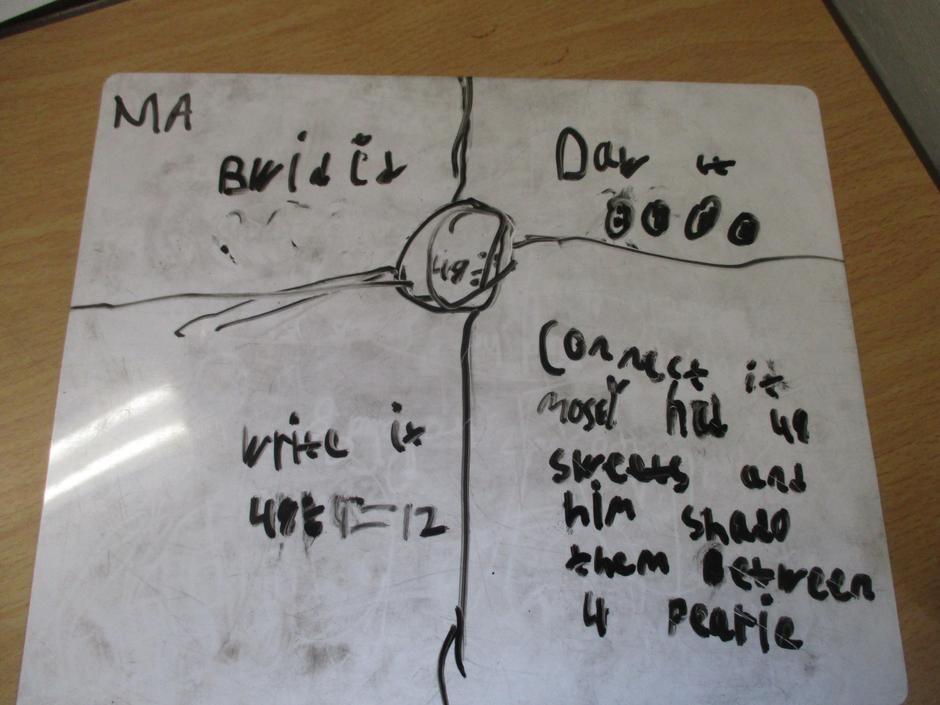 MA
Brid it
Daw it
48÷
Connect it
mosd had 48
sweets and
him shaed
them Between
4 pearie
write it
48÷4=12